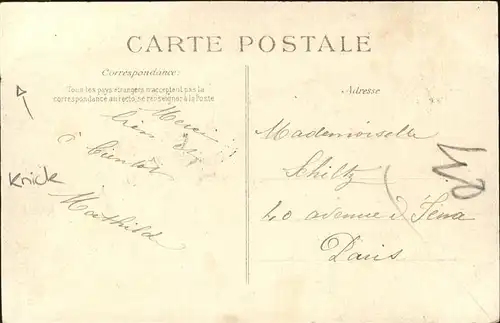 CARTE POSTALE
Correspondance:
Tous les pays étrangers n'acceptent pas la
correspondance au recto, se renseigner à la Poste
Merci
bien
à bientôt
Mathilde
Krick
Adresse
Mademoiselle
Schiltz
40 avenue d'Iéna
Paris